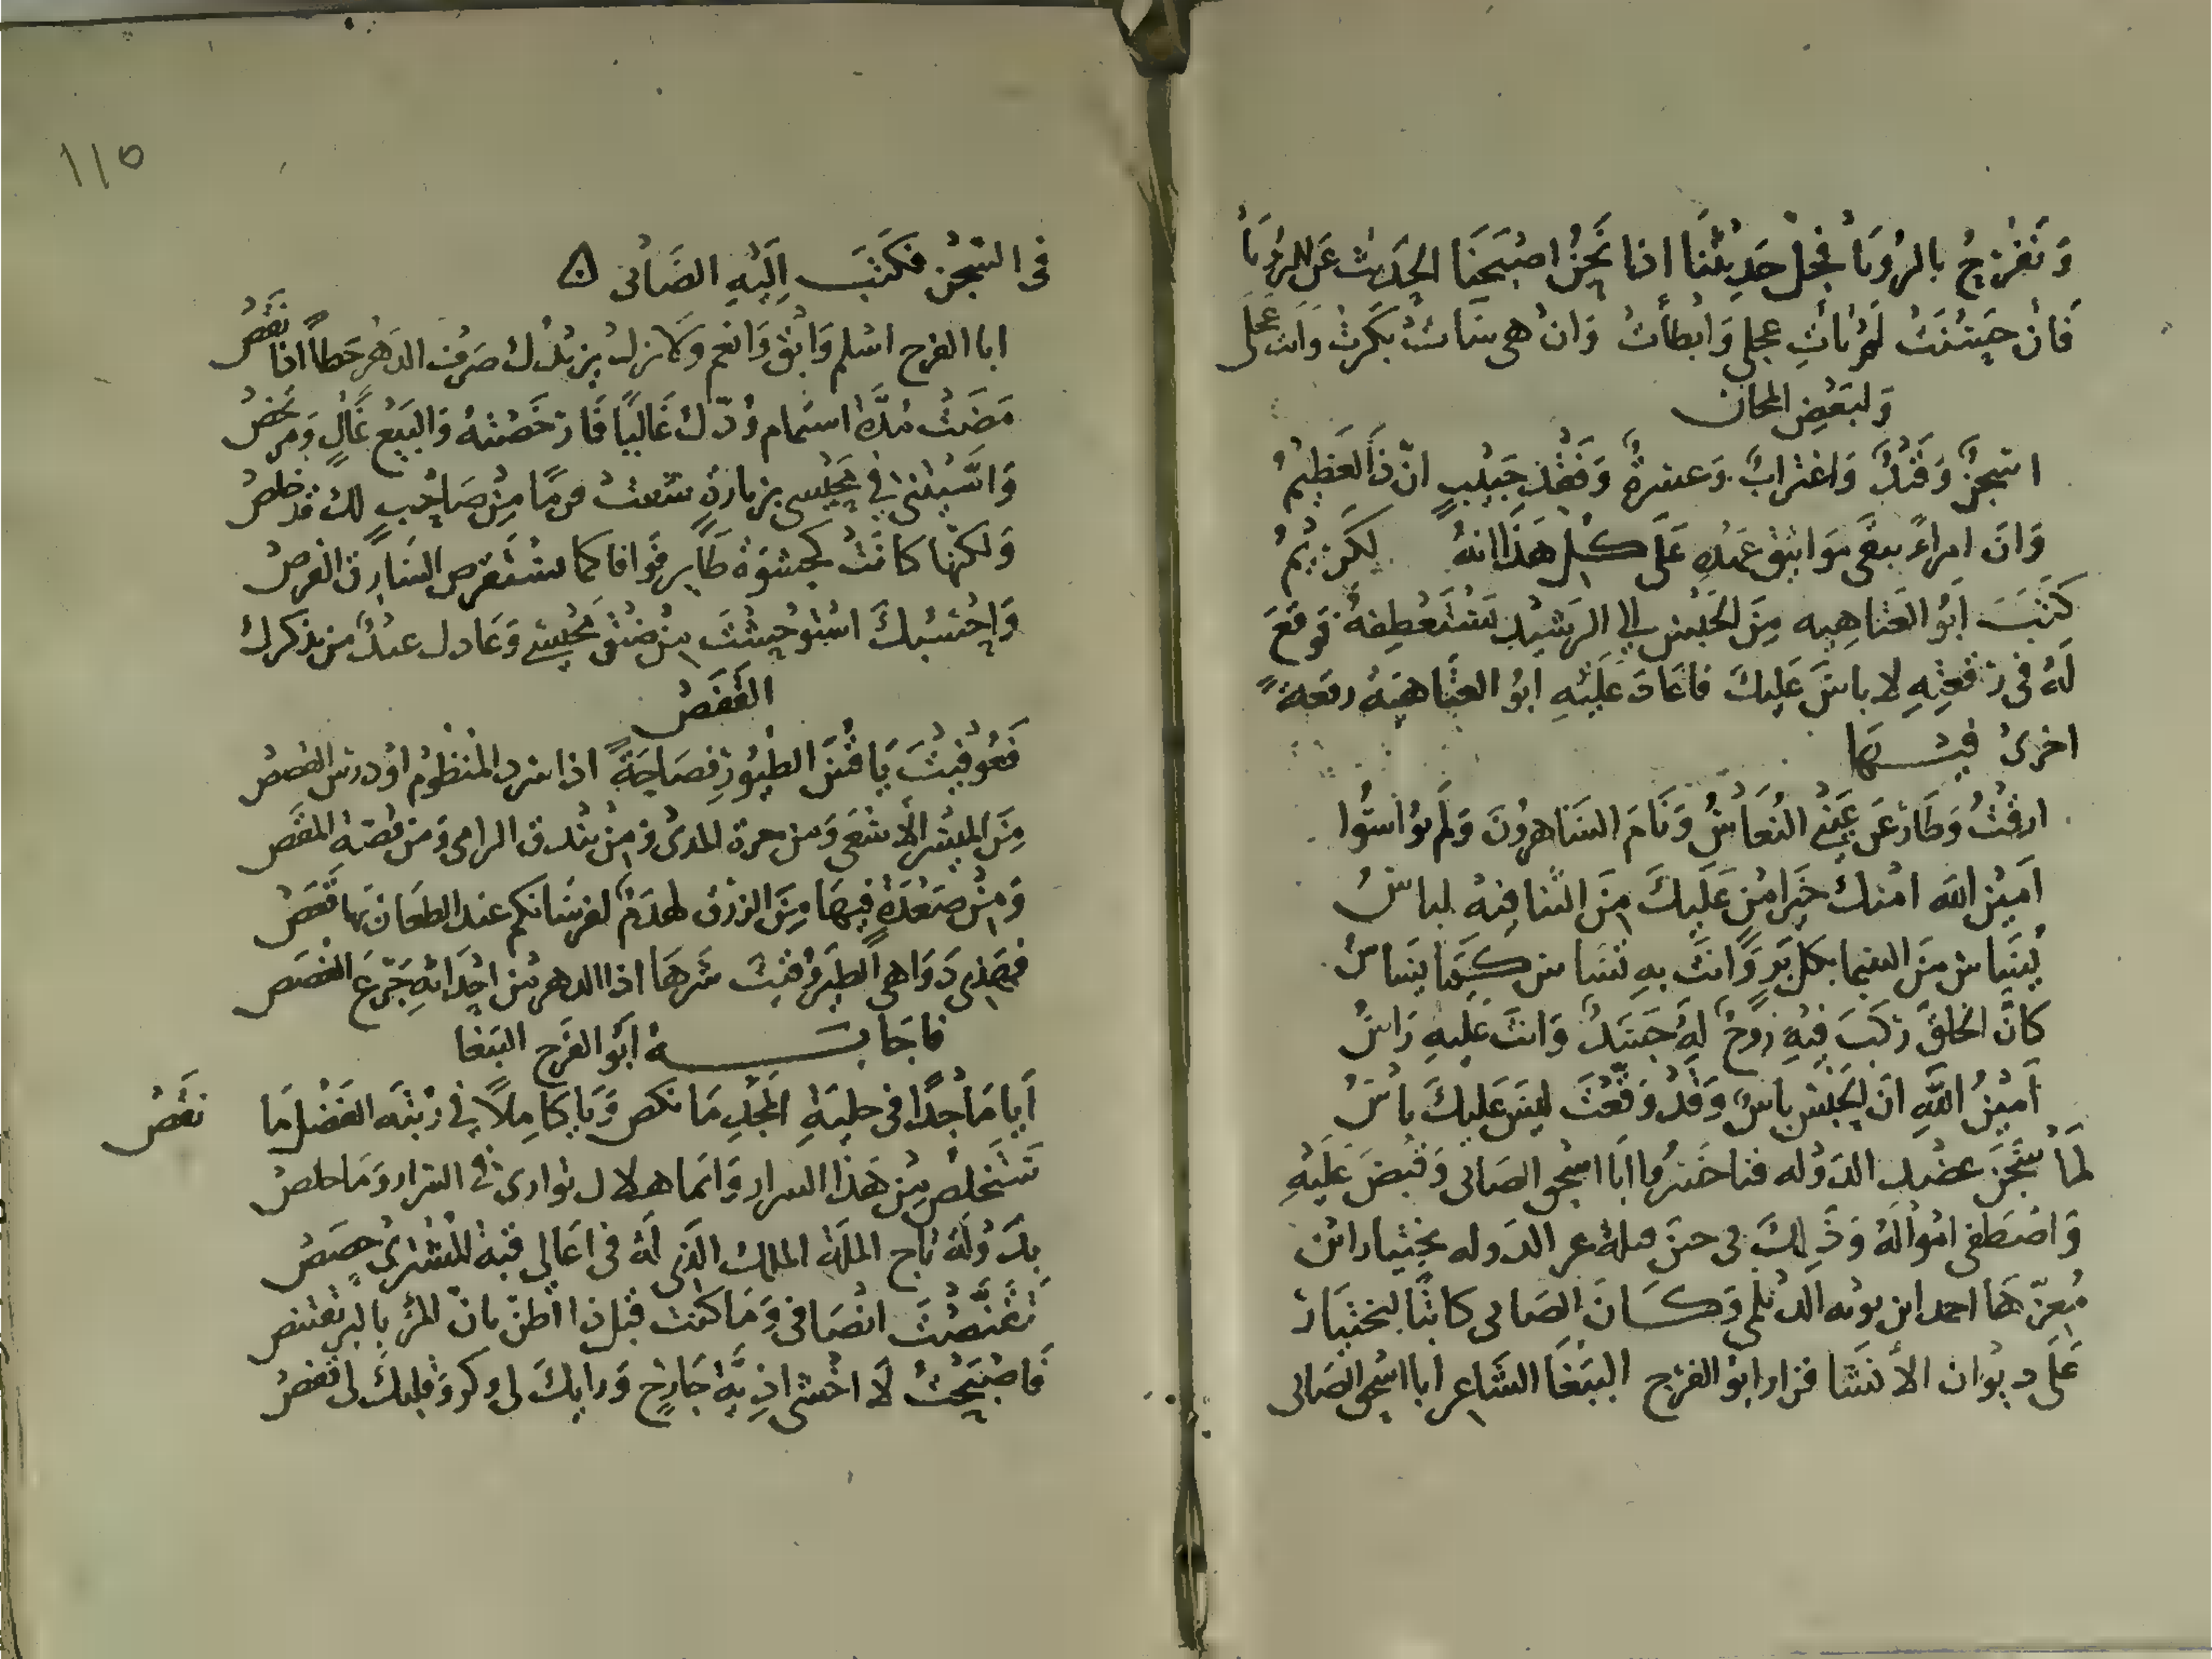 وَنَفْرَحُ بالرُؤيَا فجُلُّ حَدِيثنَا اذا نَحْنُ اصْبَحْنَا الحَدِيث عَن الرُؤيَا
فَانْ حَسُنَتْ لَمْ تأتِ عجلى وَابْطأتْ وَانْ هى سَاءتْ بَكّرتْ وَاتت عجلى
وَلبَعْضِ المجان
اسِجنٌ وَقَيْدٌ وَاغترابٌ وَعسرةٌ وَفَقْدُ حَبِيبٍ انّ ذَا لَعَظِيمُ
وَانّ امراءً تبقى مَوَاثيق عَهْدِهِ عَلى كل هَذَا انهُ لكَرِيمُ
كَتَبَ ابُو العَتاهِيه مِنَ الحَبْس الى الرَشِيْد يَسْتَعْطِفهُ فَوقعَ
لَهُ فى رقْعتِهِ لا باسَ عَليكَ فاعَادَ عَلَيْهِ ابُو العتَاهيَهُ رقعة
اخرىْ فيْـهَا
ارقْتُ وَطَارَ عَن عَيْنى النُعَاسُ وَنَامَ السَاهِرُونَ وَلَم يُوَاسُوا
اَمِيْن الله امْنك خَيرُ امْنٍ عَلَيكَ مِنَ التقا فيهُ لباسُ
تُسَاس مِنَ السَمَا بكل بَرٍ وَانتَ بهِ تسَاس كـمَا تسَاسُ
كانَّ الخلقَ ركبَ فيْهِ رُوحٌ لهُ جَسَدٌ وَانتَ عَليهِ رَاسُ
اَمِيْنُ اللَّهِ انَّ الحَبْسَ باسٌ وَقَدْ وَقَّعْتَ لَيسَ عَليكَ باْسُ
لمَا سَجَنَ عضْد الدَوْله فناخسرُوا ابَا اسْحق الصَابى وَقبَضَ عَلَيْهِ
وَاصْطفى امْوَالَهُ وَذَلِكَ فى حين قتلة عز الدَوله بختيار ابْن
مُعِزّهَا احمد ابن بويه الديْلمى وَكَـانَ الصَابى كاتبًا لبختيَار
عَلَى ديْوان الأنشَا فزار ابُو الفرَج البَبّغَا الشَاعر ابا اسْحق الصَابى
١١٥
فى السِجْن فكَتبَ اِلَيْهِ الصَابْى
ابا الفرج اسْلم وَابْق وَانعم وَلا تزل يزيْدُك صَرْف الدَهْر حَظاً اذا نَقَصُ
مَضَتْ مُدَّة استام وُدّك غَاليًا فَارخَصْتهُ وَالبَيعُ غَالٍ وَمرتخصُ
وَانَّسْتِنى فى مَحْبسى بزيارةٍ شفت قرمًا مِنْ صَاحبٍ لك قد خلصُ
وَلكنّها كانَتْ كحسْوَة طَاير فوَاقا كما يسْتفرص السَارق الفرصُ
وَاحْسبكَ اسْتوحَشْتَ مِنْ ضيْق مَحْبسى وَعَادك عيْدٌ من تذكرك
القَفَصُ
فَعُوفيْتَ يَا قُسّ الطيُورِ فصَاحَةً اذا سرد المنظُومَ اوْ درس القصصُ
مِنَ المِنْسر الأشغى وَمن حزة المدى وَمِنْ بندق الرامى وَمن قصّة المقَص
وَمِنْ صَعْدَةٍ فيهَا مِنَ الزرق لهْذمٌ لفرسَانكم عند الطعَان بها قَعَصُ
فهَذى دَوَاهى الطَيْر وُقيتَ شَرهَا اذا الدهر مِن احْدَاثهِ جَرّعَ الغُصَص
فاجَابـهُ ابُو الفَرَج البَبّغا
اَيا مَاجدًا فى حلبَةِ المجْدِ مَا نكص وَيَا كامِلًا فى رتبَه الفَضْل مَا نقَصُ
سَتَخلصُ مِنْ هَذا السرار وَانمَا هلال توارى فى السرار وَمَا خلصُ
بِدَوْلة تاج الملَة الملك الّذى لَهُ فى اعَالى قبة المشترى حِصَصُ
تقَنَّصْتَ انْصَافى وَمَا كنت قبْل ذا اظنّ بان المرْ بالبر يقتنص
فَاصْبَحْتُ لَا اخْشى اذيّة جَارحٍ وَرايكَ لى وكر وَقلبكَ لى قفصُ